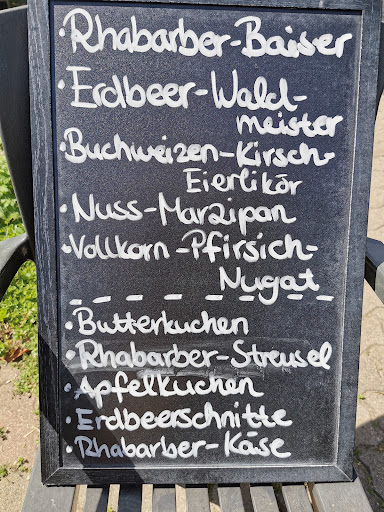 · Rhabarber-Baiser
· Erdbeer-Wald-
meister
· Buchweizen-Kirsch-
Eierlikör
· Nuss-Marzipan
· Vollkorn-Pfirsich-
Nugat
· Butterkuchen
· Rhabarber-Streusel
· Apfelkuchen
· Erdbeerschnitte
· Rhabarber-Käse